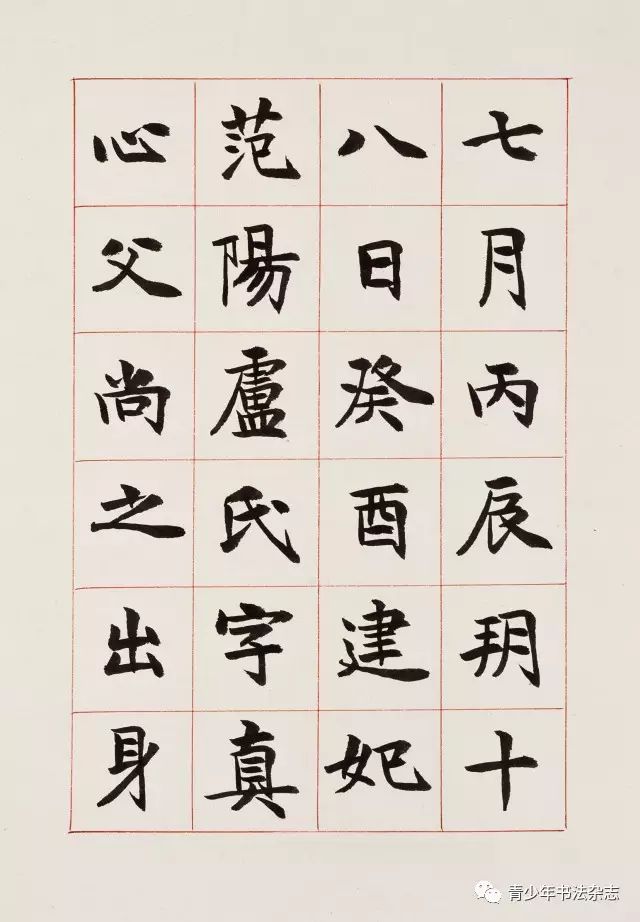 七月丙辰玥十
八日癸酉建妃
范陽盧氏字真
心父尚之出身
青少年书法杂志